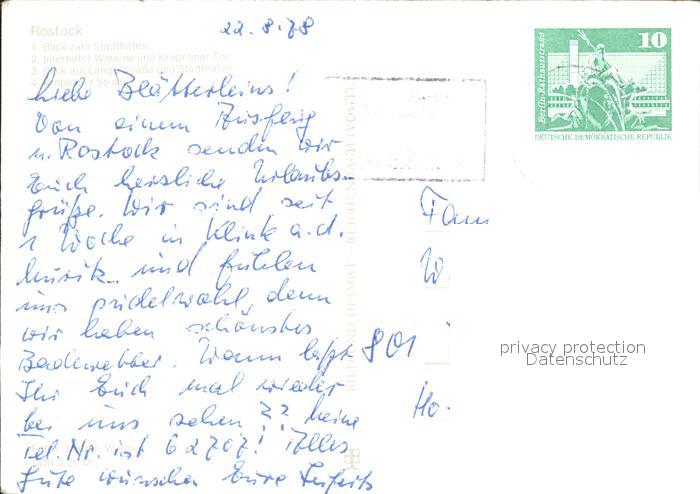 Rostock
1. Blick zum Stadthafen
2. Interhotel Warnow und Kröpeliner Tor
3. Blick auf Lange Straße und Stadthafen
22.8.78
Liebe Blätterleins!
Von einem Ausflug
n. Rostock senden wir
Euch herzliche Urlaubs-
grüße. Wir sind seit
1 Woche in Klink a. d.
Müritz und fühlen
uns pudelwohl, denn
wir haben schönstes
Badewetter. Wann laßt
Ihr Euch mal wieder
bei uns sehen?? Meine
Tel. Nr. ist 62707! Alles
Gute wünschen Eure
BILD UND HEIMAT REICHENBACH (VOGTL)
Berlin-Rathausstraße
10
DEUTSCHE DEMOKRATISCHE REPUBLIK
Fam
W.
801
Ho.
privacy protection
Datenschutz